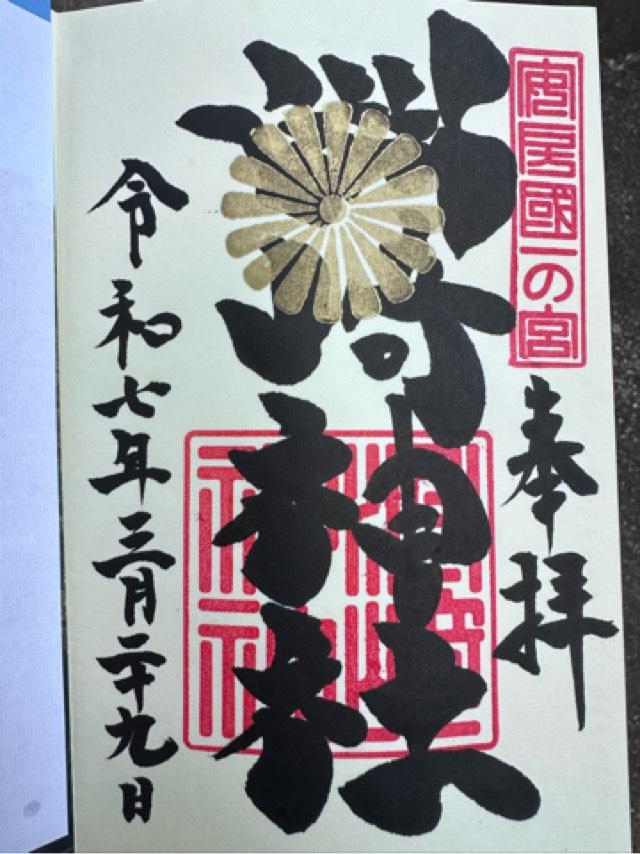 安房國一の宮
奉拝
洲崎神社
洲崎
神社
令和七年三月二十九日